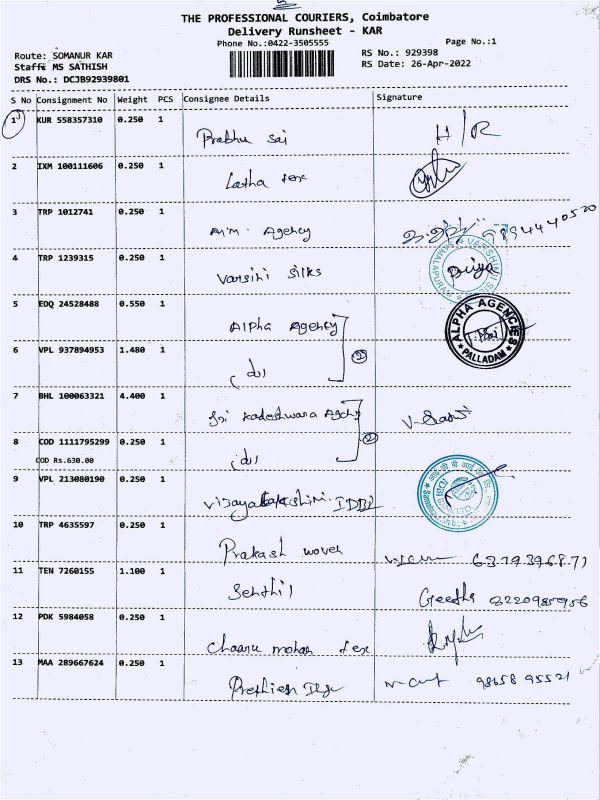 THE PROFESSIONAL COURIERS, Coimbatore
Delivery Runsheet - KAR
Phone No.:0422-3505555
Page No.:1
Route: SOMANUR KAR
RS No.: 929398
Staff: MS SATHISH
RS Date: 26-Apr-2022
DRS No.: DCJB92939801
S No Consignment No Weight PCS Consignee Details Signature
1 KUR 558357310 0.250 1 Prabhu sai H/R
2 IXM 100111606 0.250 1 Latha tex
3 TRP 1012741 0.250 1 Aim Agency 9894440520
4 TRP 1239315 0.250 1 Varsini silks Priya
VARSHINI SAMALAPURAM
5 EDQ 24528488 0.550 1 Alpha Agency
ALPHA AGENCIES PALLADAM
6 VPL 937894953 1.480 1 (do) 2
7 BHL 100063321 4.400 1 Sri Kadeshwara Agency
8 COD 1111795299 0.250 1 (do) 2
COD Rs.630.00
9 VPL 213080190 0.250 1 Vijayalakshmi. IDBI
10 TRP 4635597 0.250 1 Prakash woven 6379396871
11 TEN 7260155 1.100 1 Senthil Geetha
12 PDK 5984058 0.250 1 Chaanu mohan tex
13 MAA 289667624 0.250 1 98658 95521